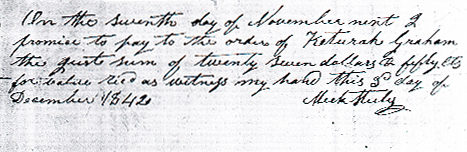 On the seventh day of November next I
promise to pay to the order of Keturah Graham
the just sum of twenty seven dollars & fifty cts
for value recd as witness my hand this 3d day of
December 1842